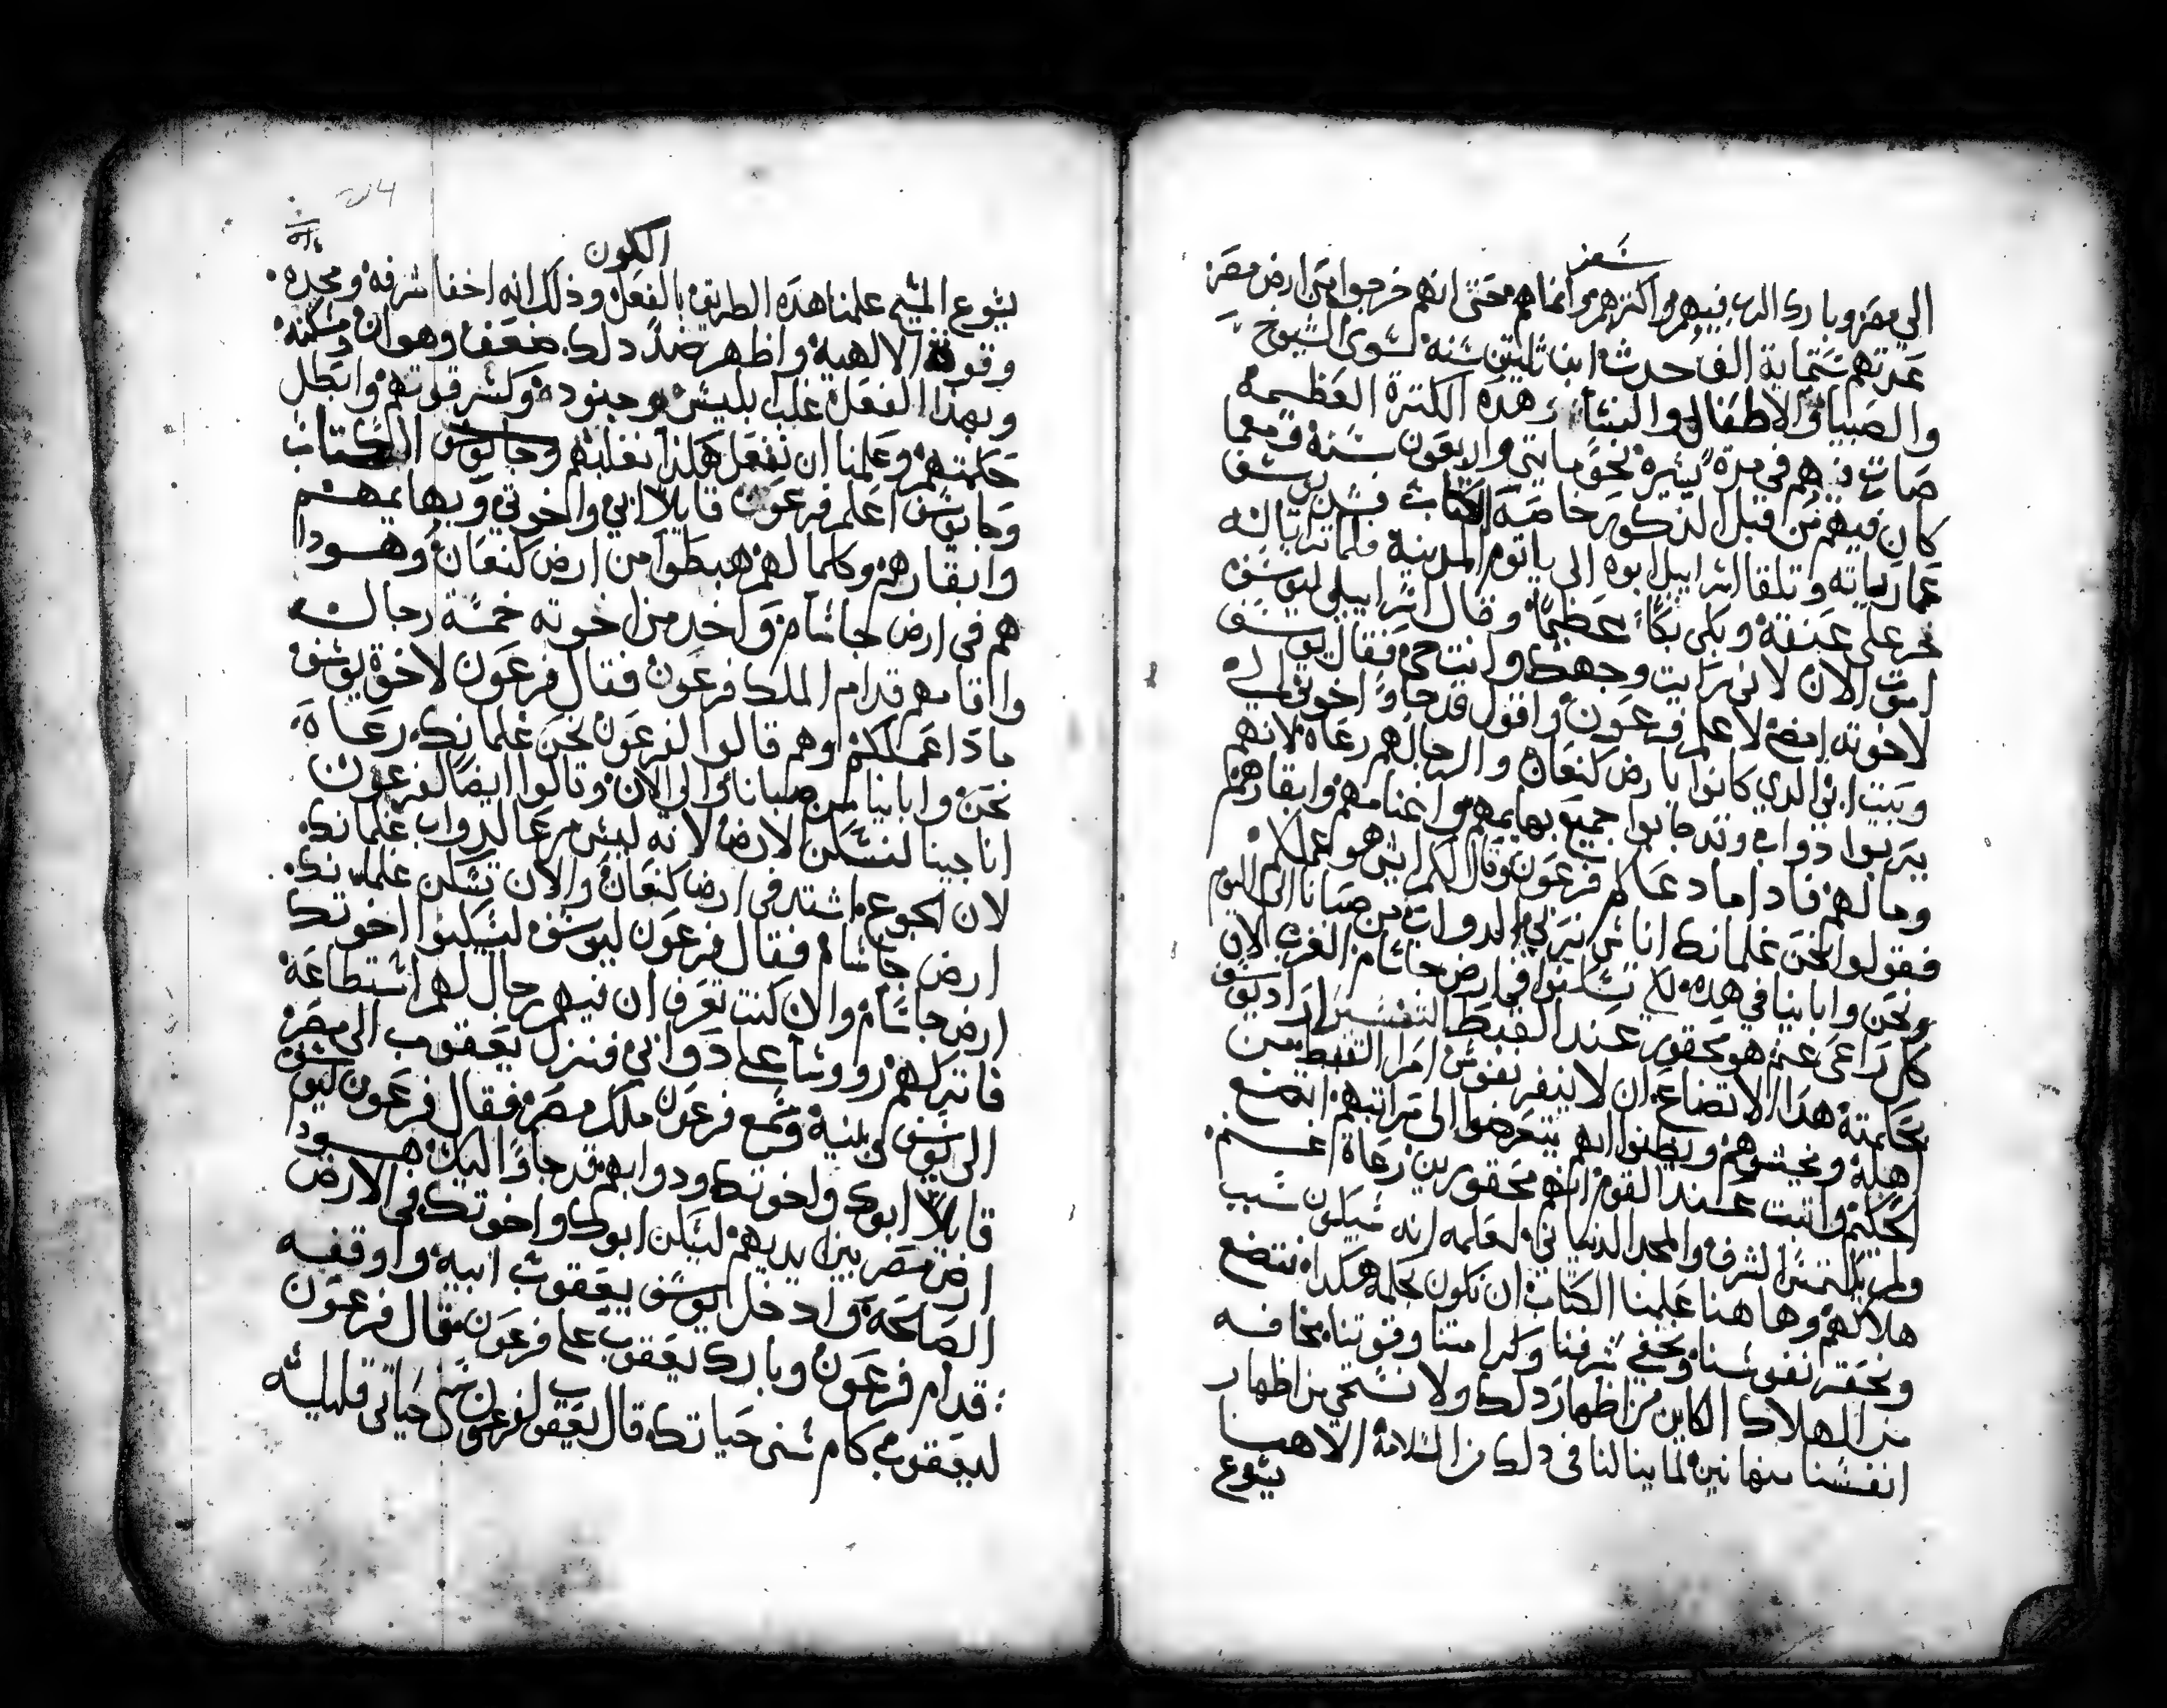 سفر
الي مصر وبارك الرب فيهم واكثرهم وانماهم حتى انهم خرجوا من ارض مصر
عدتهم ستماية الف حدث ابن ثلثين سنه لسوى الشيوخ
والصبيان والاطفال والنسا وهذه الكثرة العظيمة
صارت فيهم في مدة يسيرة نحو مايتي واربعون سنة
كان فيهم من قبل الذكور خاصة الكتاب يوسف
مركباته وتلقا اسراييل ابوه الى ياتوم المدينة فلما تراياله
خر على عنقه وبكى بكاً عظيماً وقال اسراييل ليوسف
اموت الان لاني رايت وجهك وانت حي فقال يوسف
لاخوته امضي لاعلم فرعون واقول قد جاوا اخوتي الي
وبيت ابي الذي كانوا بارض كنعان والرجال هم رعاه لانهم
يربوا دواب وقد جابوا جميع بهايمهم واغنامهم وابقارهم
وما لهم فاذا ما دعاكم فرعون وقال لكم ايش هو عملكم
فقولوا نحن غلمانك اناس نربي الدواب من صبانا الى اليوم
ونحن وابايينا في هذه لكي تسكنوا في ارض جاسام الغرب الان
كل راعي غنم هو محقور عند القبط التفسير اراد يوسف
بحكمته هذا الاتضاع ان لا ينفر نفوس امرا القبط من
اهله ويخشوهم ويظنوا انهم يتعرضوا الى مراتبهم اتضع
لحكمه واثبت عند القوم انهم محقورين رعاة اغنام
ولم يلتمس الشرف والمجد الدنياني لعلمه انه سيكون سبب
هلاكهم وهاهنا علمنا الكتاب ان نكون بحكمه هكدا نتضع
ونحقر نفوسنا ونخفي شرفنا وكرامتنا وقوتنا مخافه
من الهلاك الكاين من اظهار ذلك ولا نستحي من اظهار
انفسنا مهانين لما ينالنا في ذلك من السلامة الاهنا
يسوع
الكون
يسوع المسيح علمنا هذه الطريق بالفعل وذلك انه اخفا شرفه ومجده
وقوته الالهية واظهر ضد ذلك ضعف وهوان ومسكنه
وبهذا الفعل غلب ابليس وجنوده وكسر قوتهم وابطل
حكمتهم وعلمنا ان نفعل هكذا نغلبهم الكتاب
وجا يوسف اعلم فرعون قايلا ابي واخوتي وبهايمهم
وابقارهم وكلما لهم هبطوا من ارض كنعان وهودا
هم في ارض جاسام واخد من اخوته خمسة رجال
واقامهم قدام الملك فرعون فقال فرعون لاخوة يوسف
ماذا عملكم وهم قالوا لفرعون نحن غلمانك رعاة
نحن وابايينا من صبانا والى الان وقالوا ايضا لفرعون
انا جينا لنسكن الارض لانه ليس مرعا لدواب غلمانك
لان الجوع اشتد في ارض كنعان والان نسكن غلمانك
ارض جاسام فقال فرعون ليوسف ليسكنوا اخوتك
ارض جاسام وان كنت تعرف ان فيهم رجال لهم استطاعة
فاتركهم رووسا على دوابي فنزل يعقوب الى مصر
الى يوسف ابنه وسمع فرعون ملك مصر فقال فرعون ليوسف
قايلا ابوك واخوتك ودوابهم قد جاوا اليك هودا
ارض مصر بين يديهم ليسكن ابوك واخوتك في الارض
الصالحة وادخل يوسف يعقوب ابيه واوقفه
قدام فرعون وبارك يعقوب على فرعون فقال فرعون
ليعقوب كام سني حياتك قال يعقوب لفرعون سني حياتي قليله